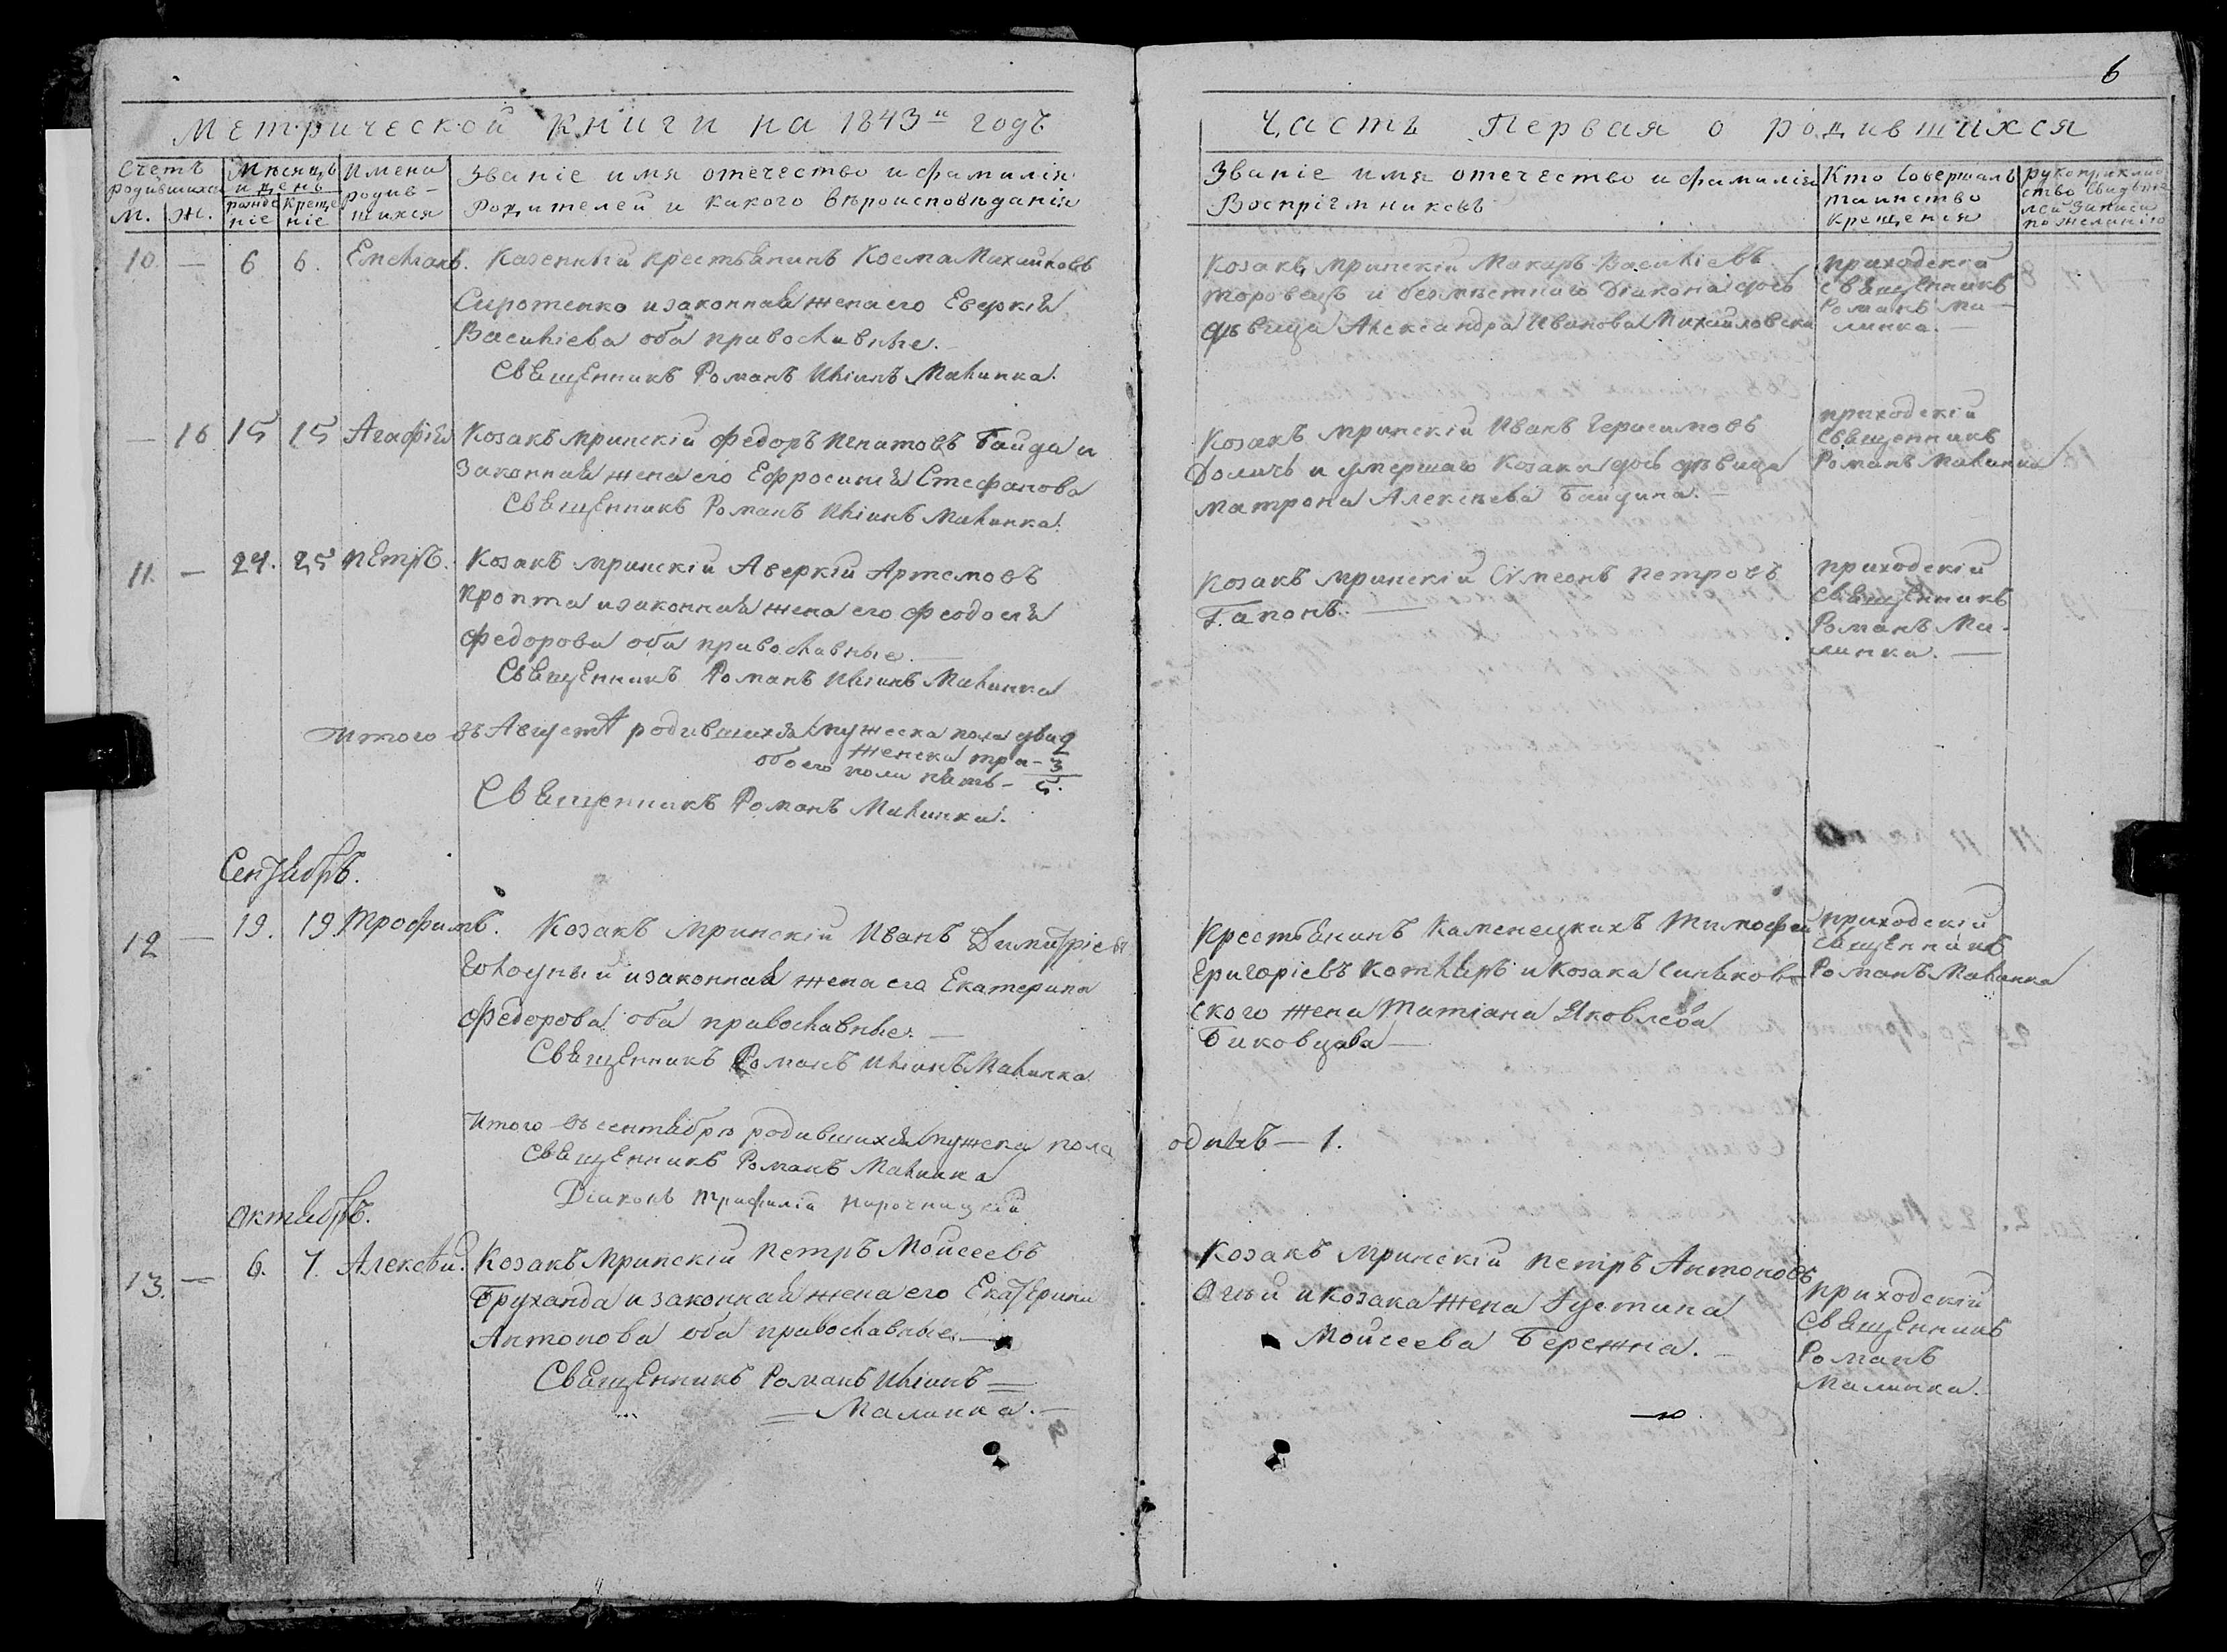 6
Метрической книги на 1843й годъ
Счетъ родившихся
М. Ж.
Мѣсяцъ и день
рожденіе крещеніе
Имена родившихся
Званіе имя отечество и фамилія
Родителей и какого вѣроисповѣданія
10. — 6 6. Емеліанъ. Казенный крестьянинъ Косма Михайловъ
Сиротенко и законная жена его Еверкія
Василіева оба православные.
Священникъ Романъ Иліинъ Малинка.
— 16 15 15 Агафія Козакъ мринскій Федоръ Игнатовъ Гайда и
законная жена его Ефросинія Стефанова
Священникъ Романъ Иліинъ Малинка.
11. — 24. 25 Петръ. Козакъ мринскій Аверкій Артемовъ
Кропта и законная жена его Феодосія
Федорова оба православные.
Священникъ Романъ Иліинъ Малинка
Итого въ Августѣ родившихся мужеска пола два 2
женска три — 3
обоего пола пять — 5.
Священникъ Романъ Малинка.
Сентябрь.
12 — 19. 19. Трофимъ. Козакъ мринскій Иванъ Димитріевъ
Голодный и законная жена его Екатерина
Федорова оба православные. —
Священникъ Романъ Иліинъ Малинка
Итого въ сентябрѣ родившихся мужска пола
Священникъ Романъ Малинка
Діаконъ Трифилій
Октябрь.
13. — 6. 7. Алексѣй. Козакъ Мринскій Петръ Моисеевъ
Бруханда и законная жена его Екатерина
Антонова оба православные. —
Священникъ Романъ Иліинъ =
= Малинка. —
Часть Первая о родившихся
Званіе имя отечество и фамилія
Воспріемниковъ
Кто совершалъ
таинство
крещенія
рукоприклад
ство свидѣте
лей записи
по желанію
Козакъ мринскій Макаръ Василіевъ
Торовецъ и безмѣстнаго Діакона дочь
дѣвица Александра Иванова Михайловска
приходскій
священникъ
Романъ Ма-
линка. —
Козакъ мринскій Иванъ Герасимовъ
Доличъ и умершаго козака дочь дѣвица
Матрона Алексѣева Гайдина. —
приходскій
священникъ
Романъ Малинка
Козакъ мринскій Сѵмеонъ Петровъ
Гапонъ. —
приходскій
священникъ
Романъ Ма-
линка. —
Крестьянинъ Каменецкихъ Тимофей
Григоріевъ Котляръ и козака
ского жена Татіана Яковлева
Биковцова —
приходскій
священникъ
Романъ Малинка
одинъ — 1.
Козакъ мринскій Петръ Антоновъ
Огій и козака жена Іустина
Моисеева Бережна. —
приходскій
Священникъ
Романъ
Малинка.